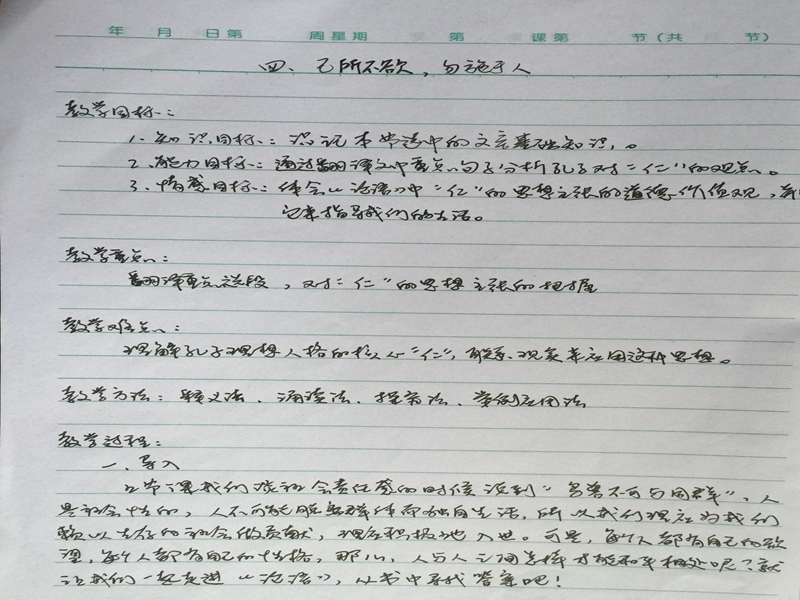 年 月 日第 周星期 第 课第 节(共 节)
四、己所不欲，勿施于人
教学目标：
1、知识目标：识记本节选中的文言基础知识。
2、能力目标：通过翻译文中重点句子分析孔子对“仁”的观点。
3、情感目标：体会《论语》中“仁”的思想主张的道德价值观，并
它来指导我们的生活。
教学重点：
翻译重点选段，对“仁”的思想主张的把握
教学难点：
理解孔子理想人格的核心“仁”，联系现实来应用这种思想。
教学方法：释义法、诵读法、探究法、案例应用法
教学过程：
一、导入
上节课我们谈社会责任感的时候说到“鸟兽不可与同群”，人
是社会性的，人不可能脱离群体而独自生活，所以我们理应为我们
赖以生存的社会做贡献，理应积极地入世。可是，每个人都有自己的欲
望，每个人都有自己的性格，那么，人与人之间怎样才能和平相处呢？就
让我们一起走进《论语》，从书中寻找答案吧！